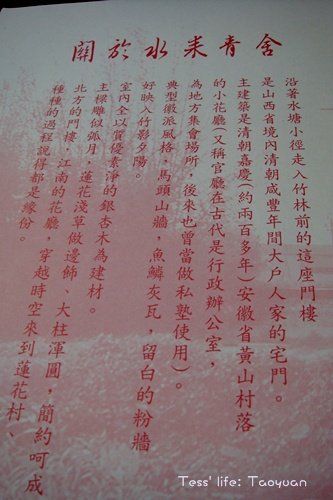 關於水来青舍
沿著水塘小徑走入竹林前的這座門樓
是山西省境內清朝咸豐年間大戶人家的宅門。
主建築是清朝嘉慶(約兩百多年)安徽省黃山村落
的小花廳(又稱官廳在古代是行政辦公室，
為地方集會場所，後來也曾當做私塾使用)。
典型徽派風格，馬頭山牆，魚鱗灰瓦，留白的粉牆
好映入竹影夕陽。
室內全以質優素淨的銀杏木為建材。
主樑雕似弧月，蓮花淺草做邊飾、大柱渾圓，簡約呵成
北方的門樓，江南的花廳，穿越時空來到蓮花村、
種種的過程說得都是緣份。
Tess' life: Taoyuan